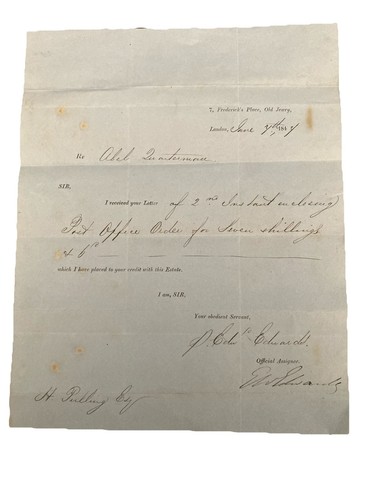 7, Frederick's Place, Old Jewry,
London, June 7th 1847
Re Abel Quartermaine
SIR,
I received your Letter of 2nd Instant enclosing
Post Office Order for Seven shillings
& 6d
which I have placed to your credit with this Estate.
I am, SIR,
Your obedient Servant,
p. Edwd Edwards
Official Assignee.
H Pulling Esq